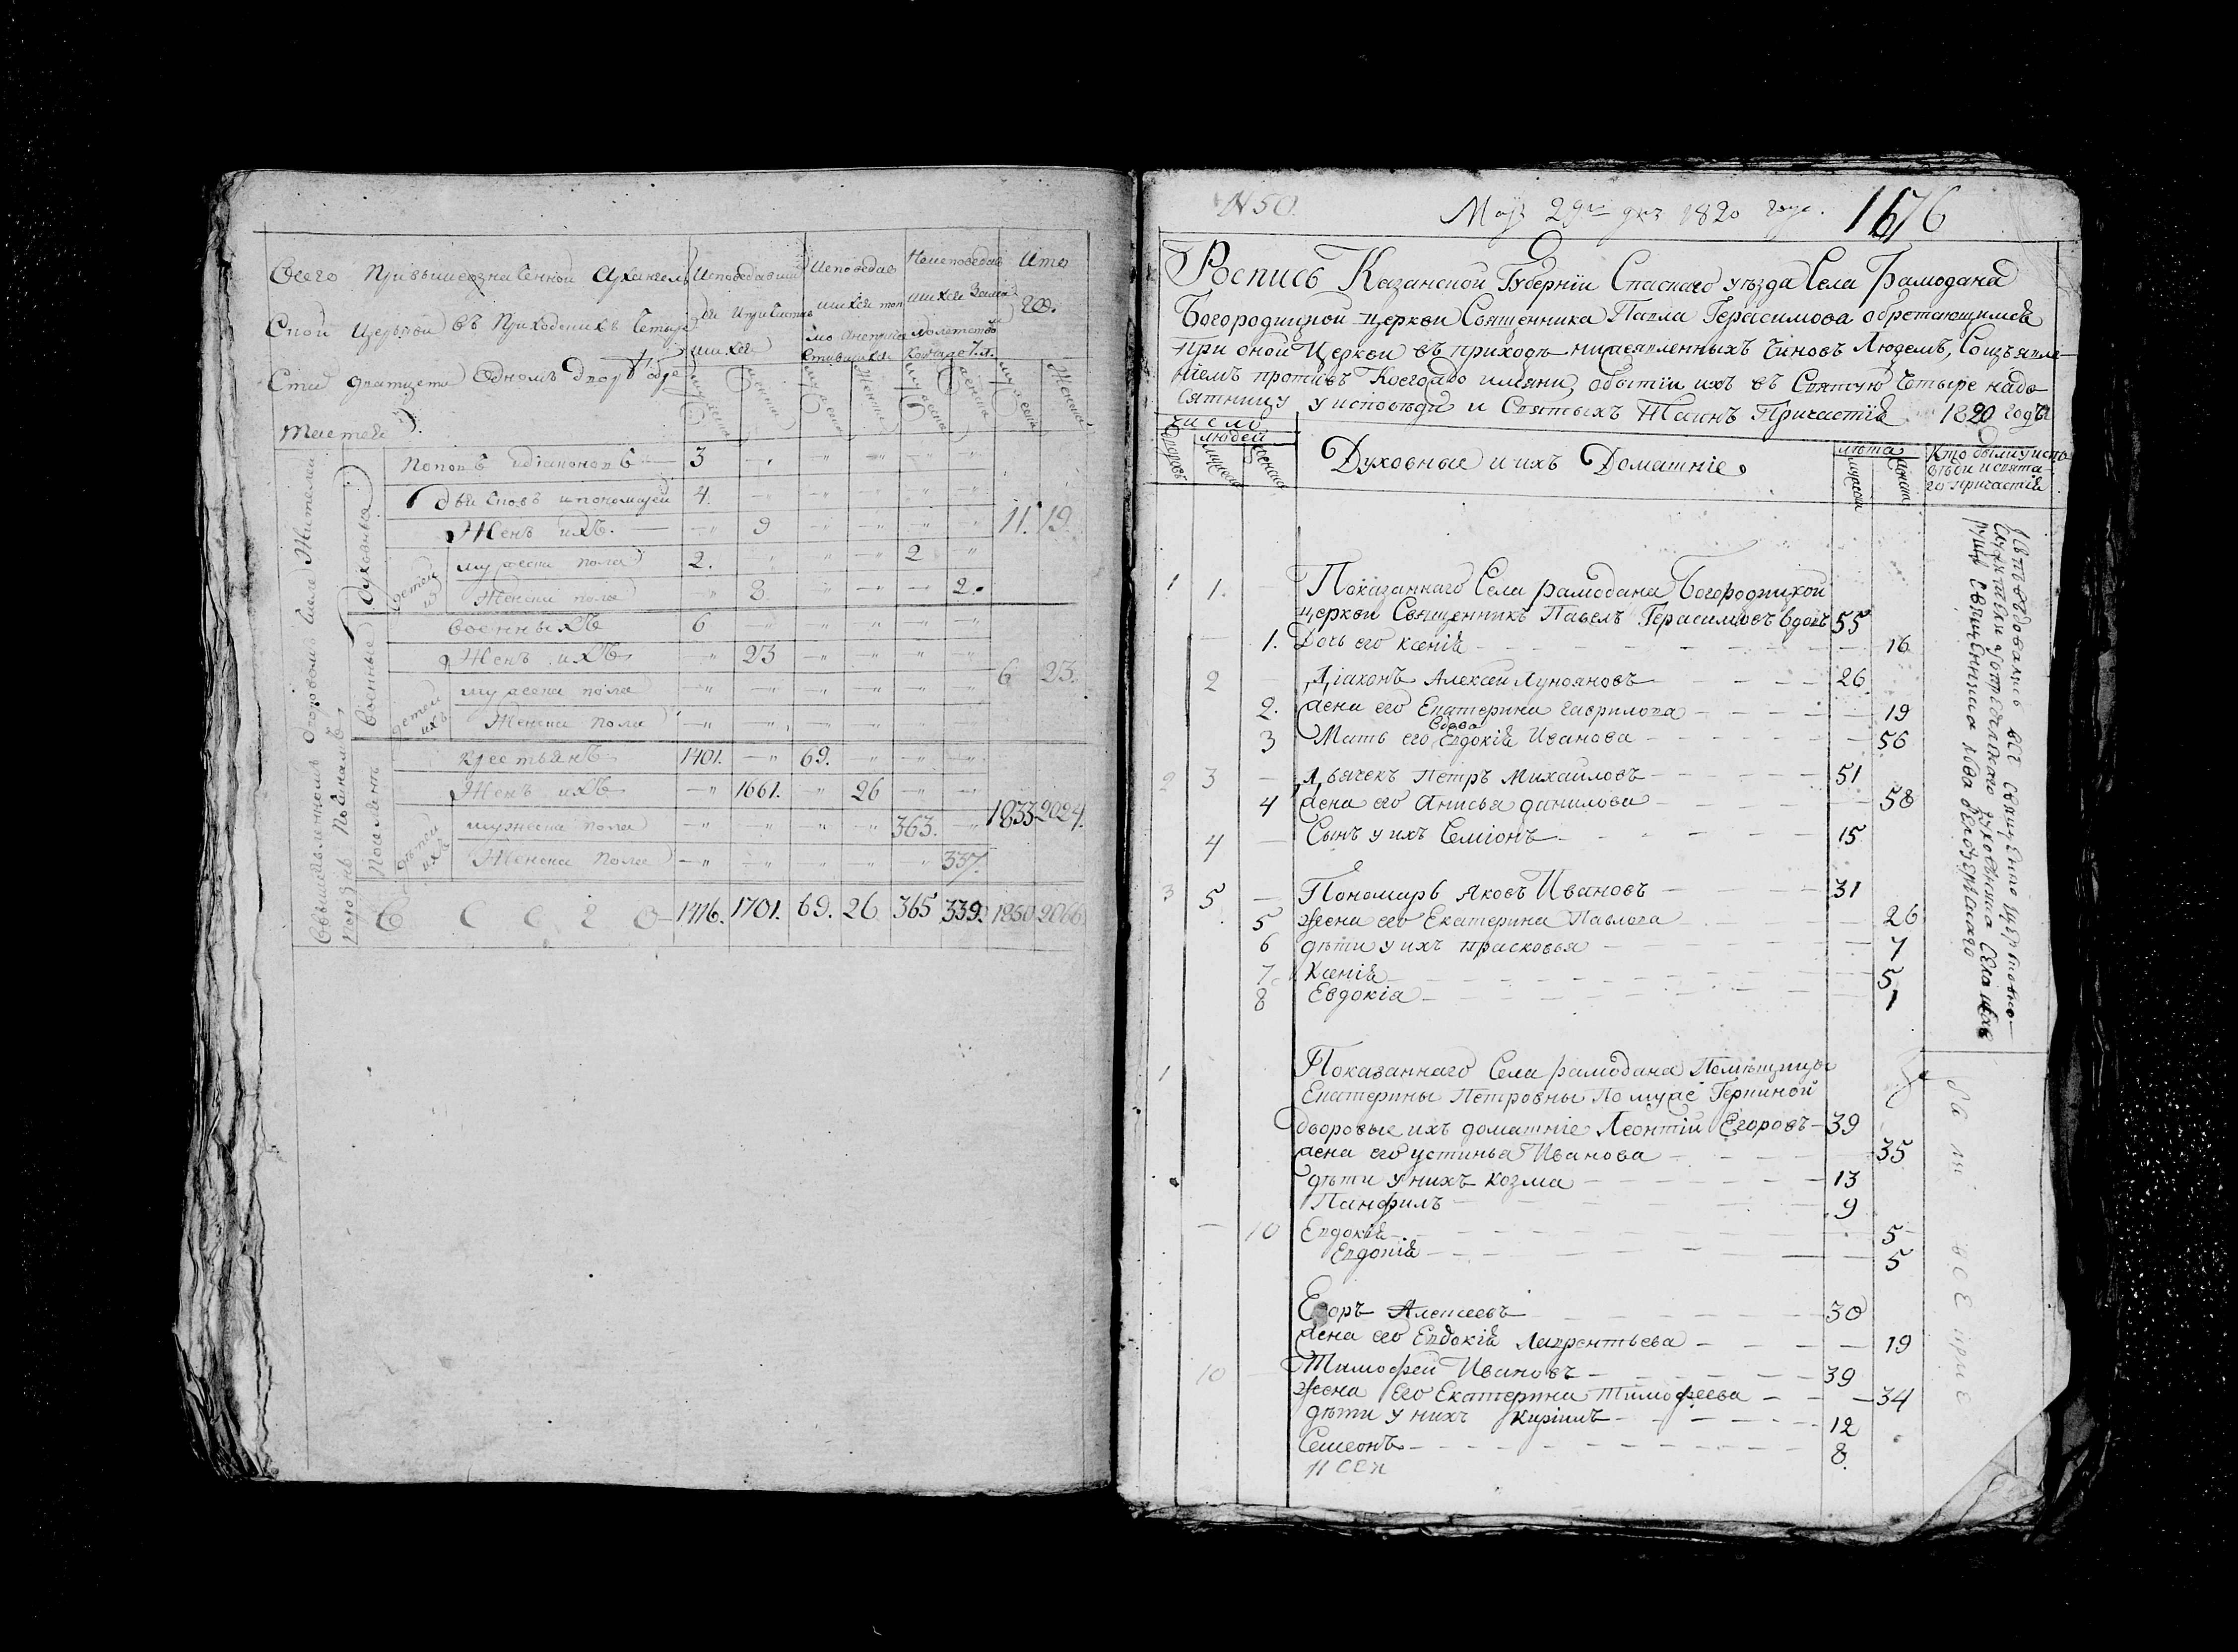 Всего при вышеозначенной Архангел
ской церкви въ приходскихъ четыре
ста дватцети одномъ дворѣ обре
тается
Исповедавши
ся и приобщив
шихся
Исповедав
шихся ток
мо а неприча
стившихся
Неисповедав
шихся за мало
летство
Ито
го.
мужеска
женска
мужеска
женска
мужеска
женска
мужеска
женска
Духовна
Поповъ и діаконовъ 3
Дьячковъ и пономарей 4.
Женъ ихъ. 9 11. 19.
детей ихъ
мужеска пола 2. 2
Женска пола 8 2.
Военные
Военныхъ 6
Женъ ихъ 23 6 23.
детей ихъ
мужеска пола
Женска пола
Поселянъ
Крестьянъ 1401. 69.
Женъ ихъ 1661. 26
детей ихъ
мужеска пола 363. 1833 2024.
Женска пола 337.
В с е г о 1416. 1701. 69. 26 365 339. 1850 2066
№ 50.
Маія 29го дня 1820 года.
1676
Роспись Казанской Губерніи Спаскаго уѣзда Села Рамодана
Богородицкой церкви Священника Павла Герасимова обретающимся
при оной Церкви въ приходѣ нижеявленныхъ чиновъ Людемъ, Соизъявле
ніемъ противъ Коегождо имяни, обытіи ихъ въ Святую Четыредеся
тницу у исповѣди и Святыхъ Таинъ Причастія 1820 годъ
число
дворовъ
людей
мужеска
женска
Духовные и ихъ Домашніе.
лѣта
мужеска
женска
Кто были у испо
вѣди и свята
го причастія
1 1. Показаннаго Села рамодана Богородицкой
церкви Священникъ Павелъ Герасимовъ вдовъ 55
1. Дочь его Ксенія 16
2 Діаконъ Алексей Лукояновъ 26
2. жена его Екатерина гаврилова 19
вдова
3 Мать его Евдокія Иванова 56
2 3 Дьячекъ Петръ Михайловъ 51
4 жена его Анисья данилова 58
4 Сынъ у ихъ Семіонъ 15
3 5 Пономарь яковъ Ивановъ 31
5 жена его Екатерина Павлова 26
6 дѣти у ихъ прасковья 7
7 Ксенія 5
8 Евдокіа 1
1 Показаннаго Села рамодана Помѣщицы
Екатерины Петровны По мужѣ Геркиной
дворовые ихъ домашніе Леонтій Егоровъ 39
жена его устинья Иванова 35
дѣти у нихъ козма 13
Панфилъ 9
10 Евдокія 5
Евдокія 5
Егоръ Алексеевъ 30
жена его Евдокія Лаврентьева 19
10 Тимофей Ивановъ 39
жена его Екатерина тимофеева 34
дѣти у нихъ Кирилъ 12
Семеонъ 8.